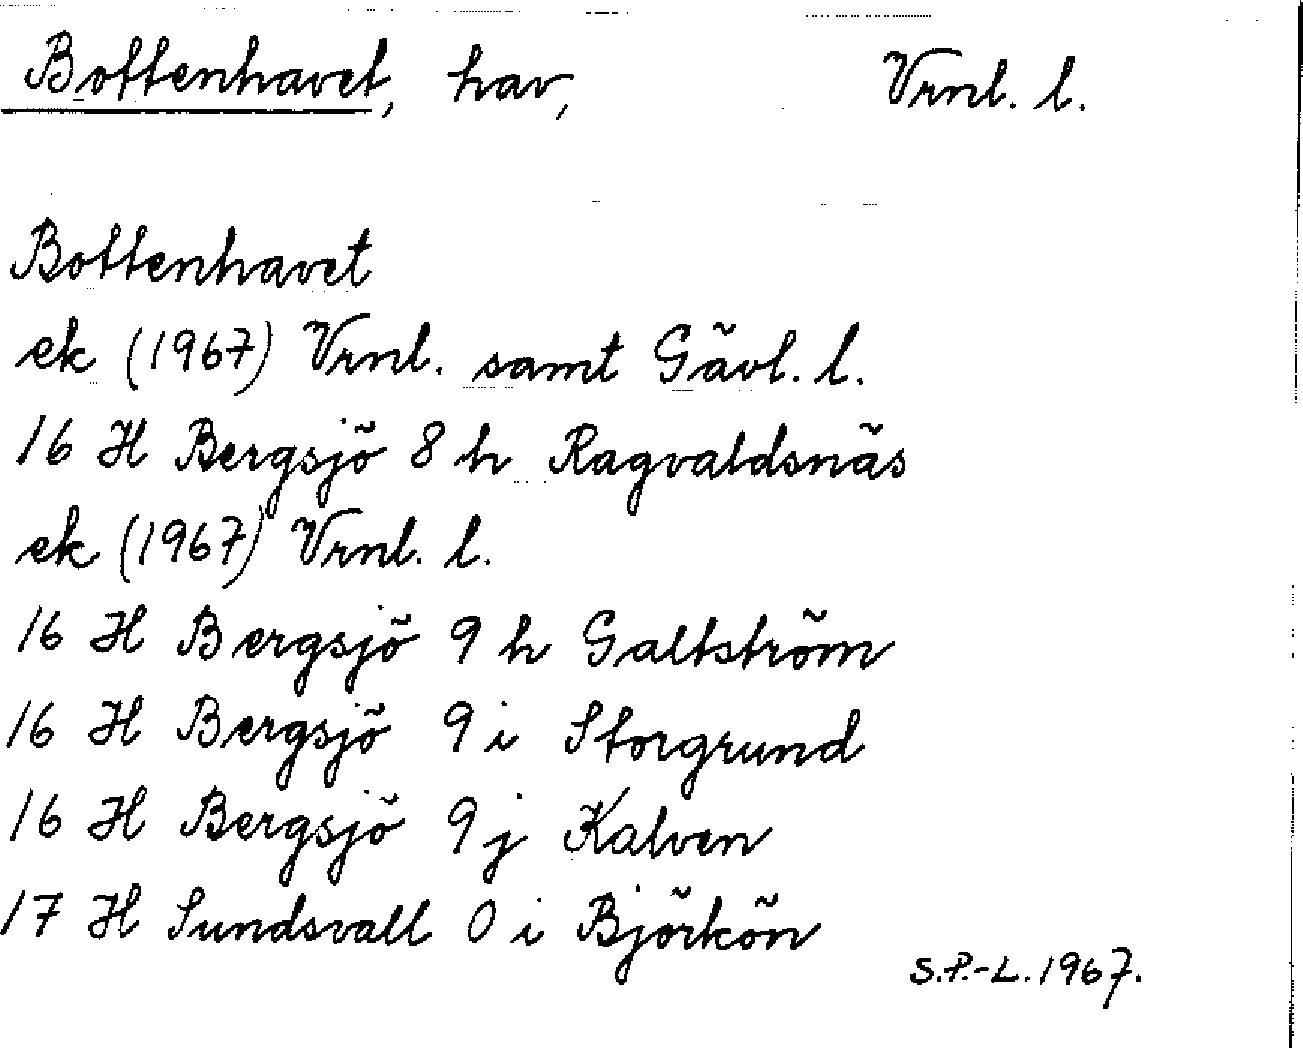 Bottenhavet, hav, Vrnl. l.
Bottenhavet
ek (1967) Vrnl. samt Gävl. l.
16 H Bergsjö 8 h Ragvaldsnäs
ek (1967) Vrnl. l.
16 H Bergsjö 9 h Galtström
16 H Bergsjö 9 i Storgrund
16 H Bergsjö 9 j Kalven
17 H Sundsvall 0 i Björkön
S.P.-L. 1967.